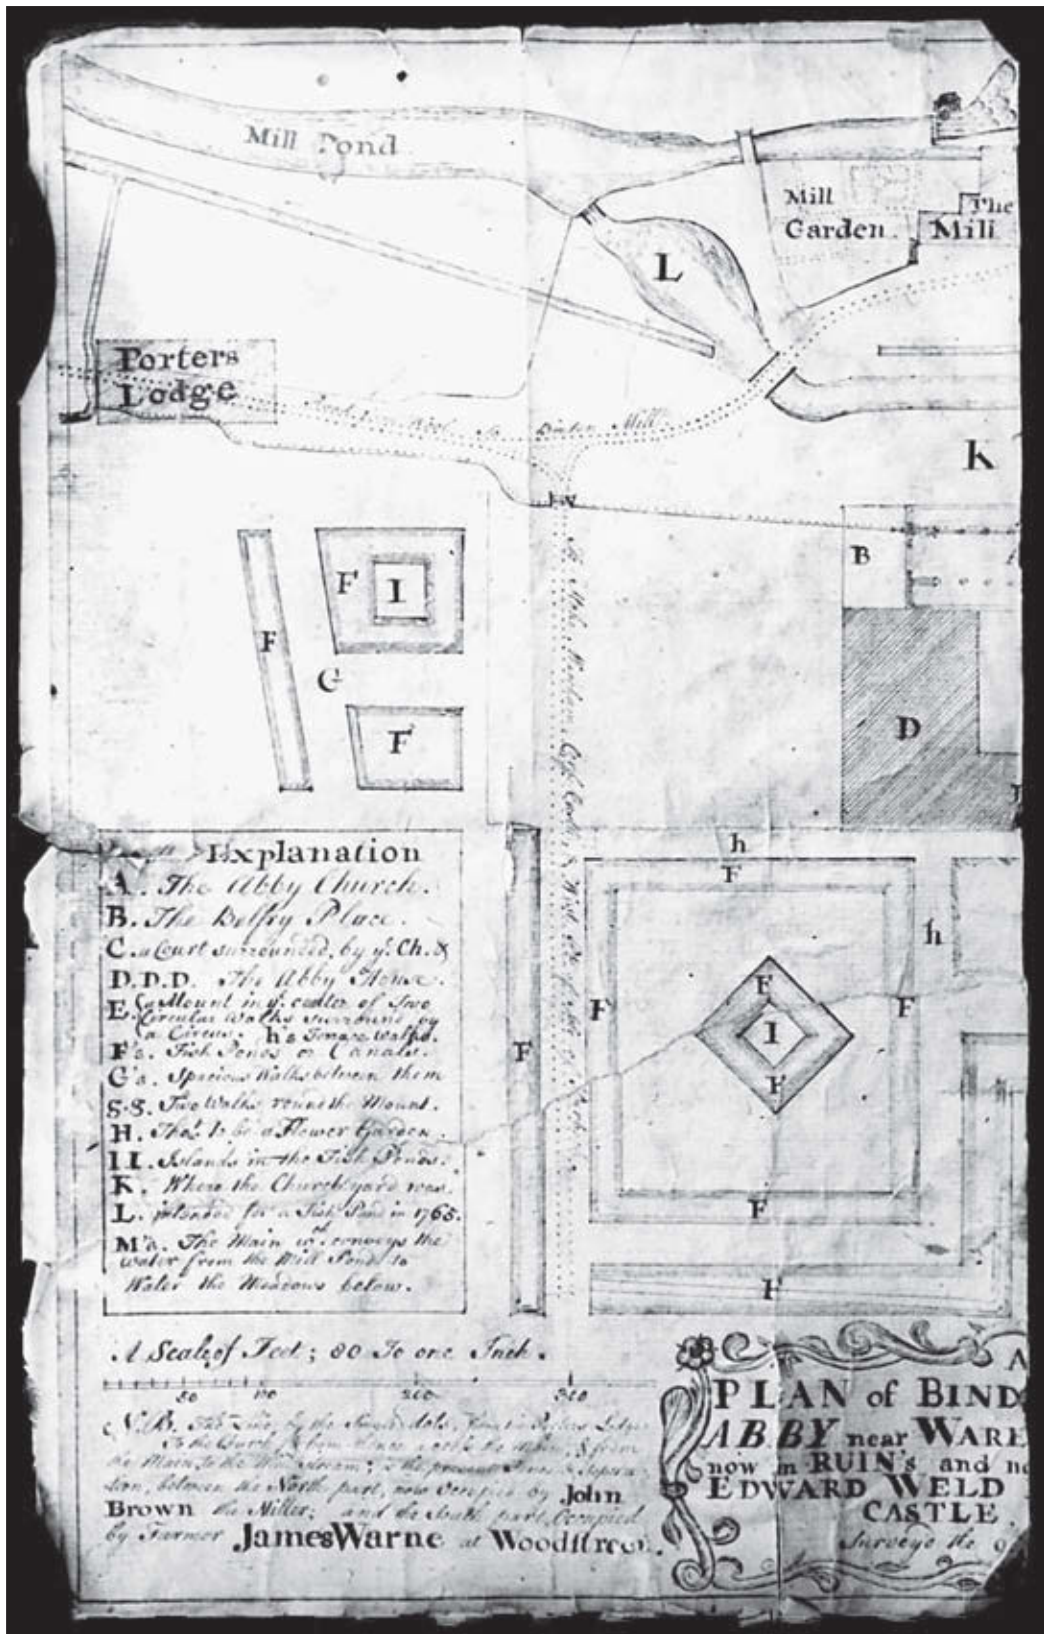 Mill Pond
Mill
Garden.
The
Mill
L
Porters
Lodge
Road from Wool to Binden Mill
K
B
F
I
F
G
F
D
h
F
h
F
F
F
I
F
F
F
F
Explanation
A. The Abby Church.
B. The Belfry Place.
C. a Court surrounded, by ye. Ch. &
D.D.D. The Abby House.
E. a Mount in ye. center of Two
Circular Walks surround by
a Circus. h's Terrace walks.
F's. Fish Ponds or Canals.
G's. Spacious Walks between them
S-S. Two Walks round the Mount.
H. Thot. to be a Flower Garden.
I I. Islands in the Fish Ponds.
K. Where the Church yard was.
L. intended for a Fish Pond in 1765.
M's. The Main wh. conveys the
water from the Mill Pond to
Water the Meadows below.
A Scale of Feet; 80 To one Inch.
50 100 200 300
N.B. The Line by the Single dots, from the Porters Lodge
To the Church, & from thence
the Main to the Mill Stream; is the present
between the North part, now occupied by John
Brown the Miller; and the South part, Occupied
by Farmer James Warne at Woodstreet.
A
PLAN of BIND
ABBY near WARE
now in RUIN's and no
EDWARD WELD
CASTLE.
Survey'd the 9